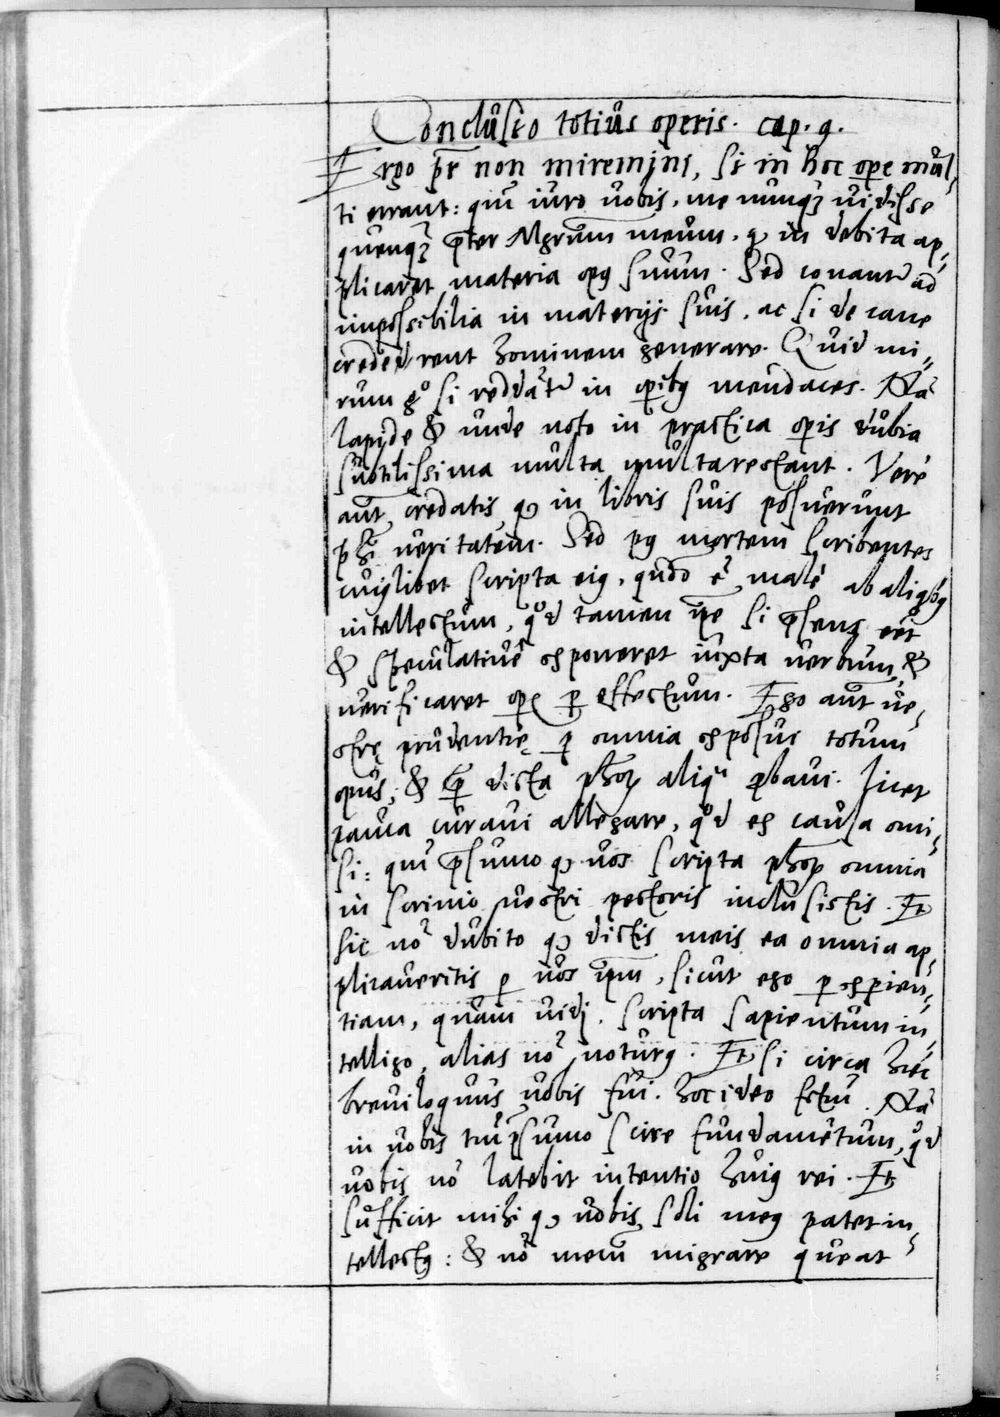 Conclusio totius operis. cap. 9.
Ergo pr̄ non miremini, si in hoc ope mul„
ti errant: qm̄ iuro vobis, me nunqꝫ vidisse
quenqꝫ p̄ter Mgrūm meum, qͦ in debita ap„
plicaret materia opꝰ suum. Sed conantur ad
impossibilia in materijs suis, ac si de cane
crederent hominem generare. Quid mi„
rum gͦ si reddātr in opibꝰ mendaces. Nā
lapide & unde noto in practica opis dubia
subtilissima multa multa restant. Verè
aut̄ credatis qͦ in libris suis posuerunt
phī veritatem. Sed pꝰ mortem scribentes
cuilibet scripta eiꝰ, qn̄do ē malè ab aliqbꝰ
intellectum, qͦd tamen ip̄e si p̄sens eēt
& speculativè exponeret iuxta verbum, &
verificaret opꝰ ꝑ effectum. Ego aut̄ ve„
strę prudentię ꝑ omnia exposui totum
opus, & ꝑ dicta phōꝝ aliqͣ ꝓbavi. licet
pauca curavi allegare, qͦd ex causa omi„
si: qm̄ p̄sumo qͦ vos scripta phōꝝ omnia
in scrinio vestri pectoris inclusistis. Et
sic nō dubito qͦ dictis meis ea omnia ap„
plicaveritis ꝑ vos ip̄m, sicut ego ꝑ experien„
tiam, quam vidi, scripta sapientum in„
telligo, alias nō noturꝰ. Et si circa hęc
breviloquus vobis fui. hoc ideo est. Nā
in vobis tm̄ p̄sumo scire fundamentum, qͦd
vobis nō latebit intentio huiꝰ rei. Et
sufficit mihi qͦ vobis soli meꝰ patet in„
tellectꝰ: & nō meū migrare queat